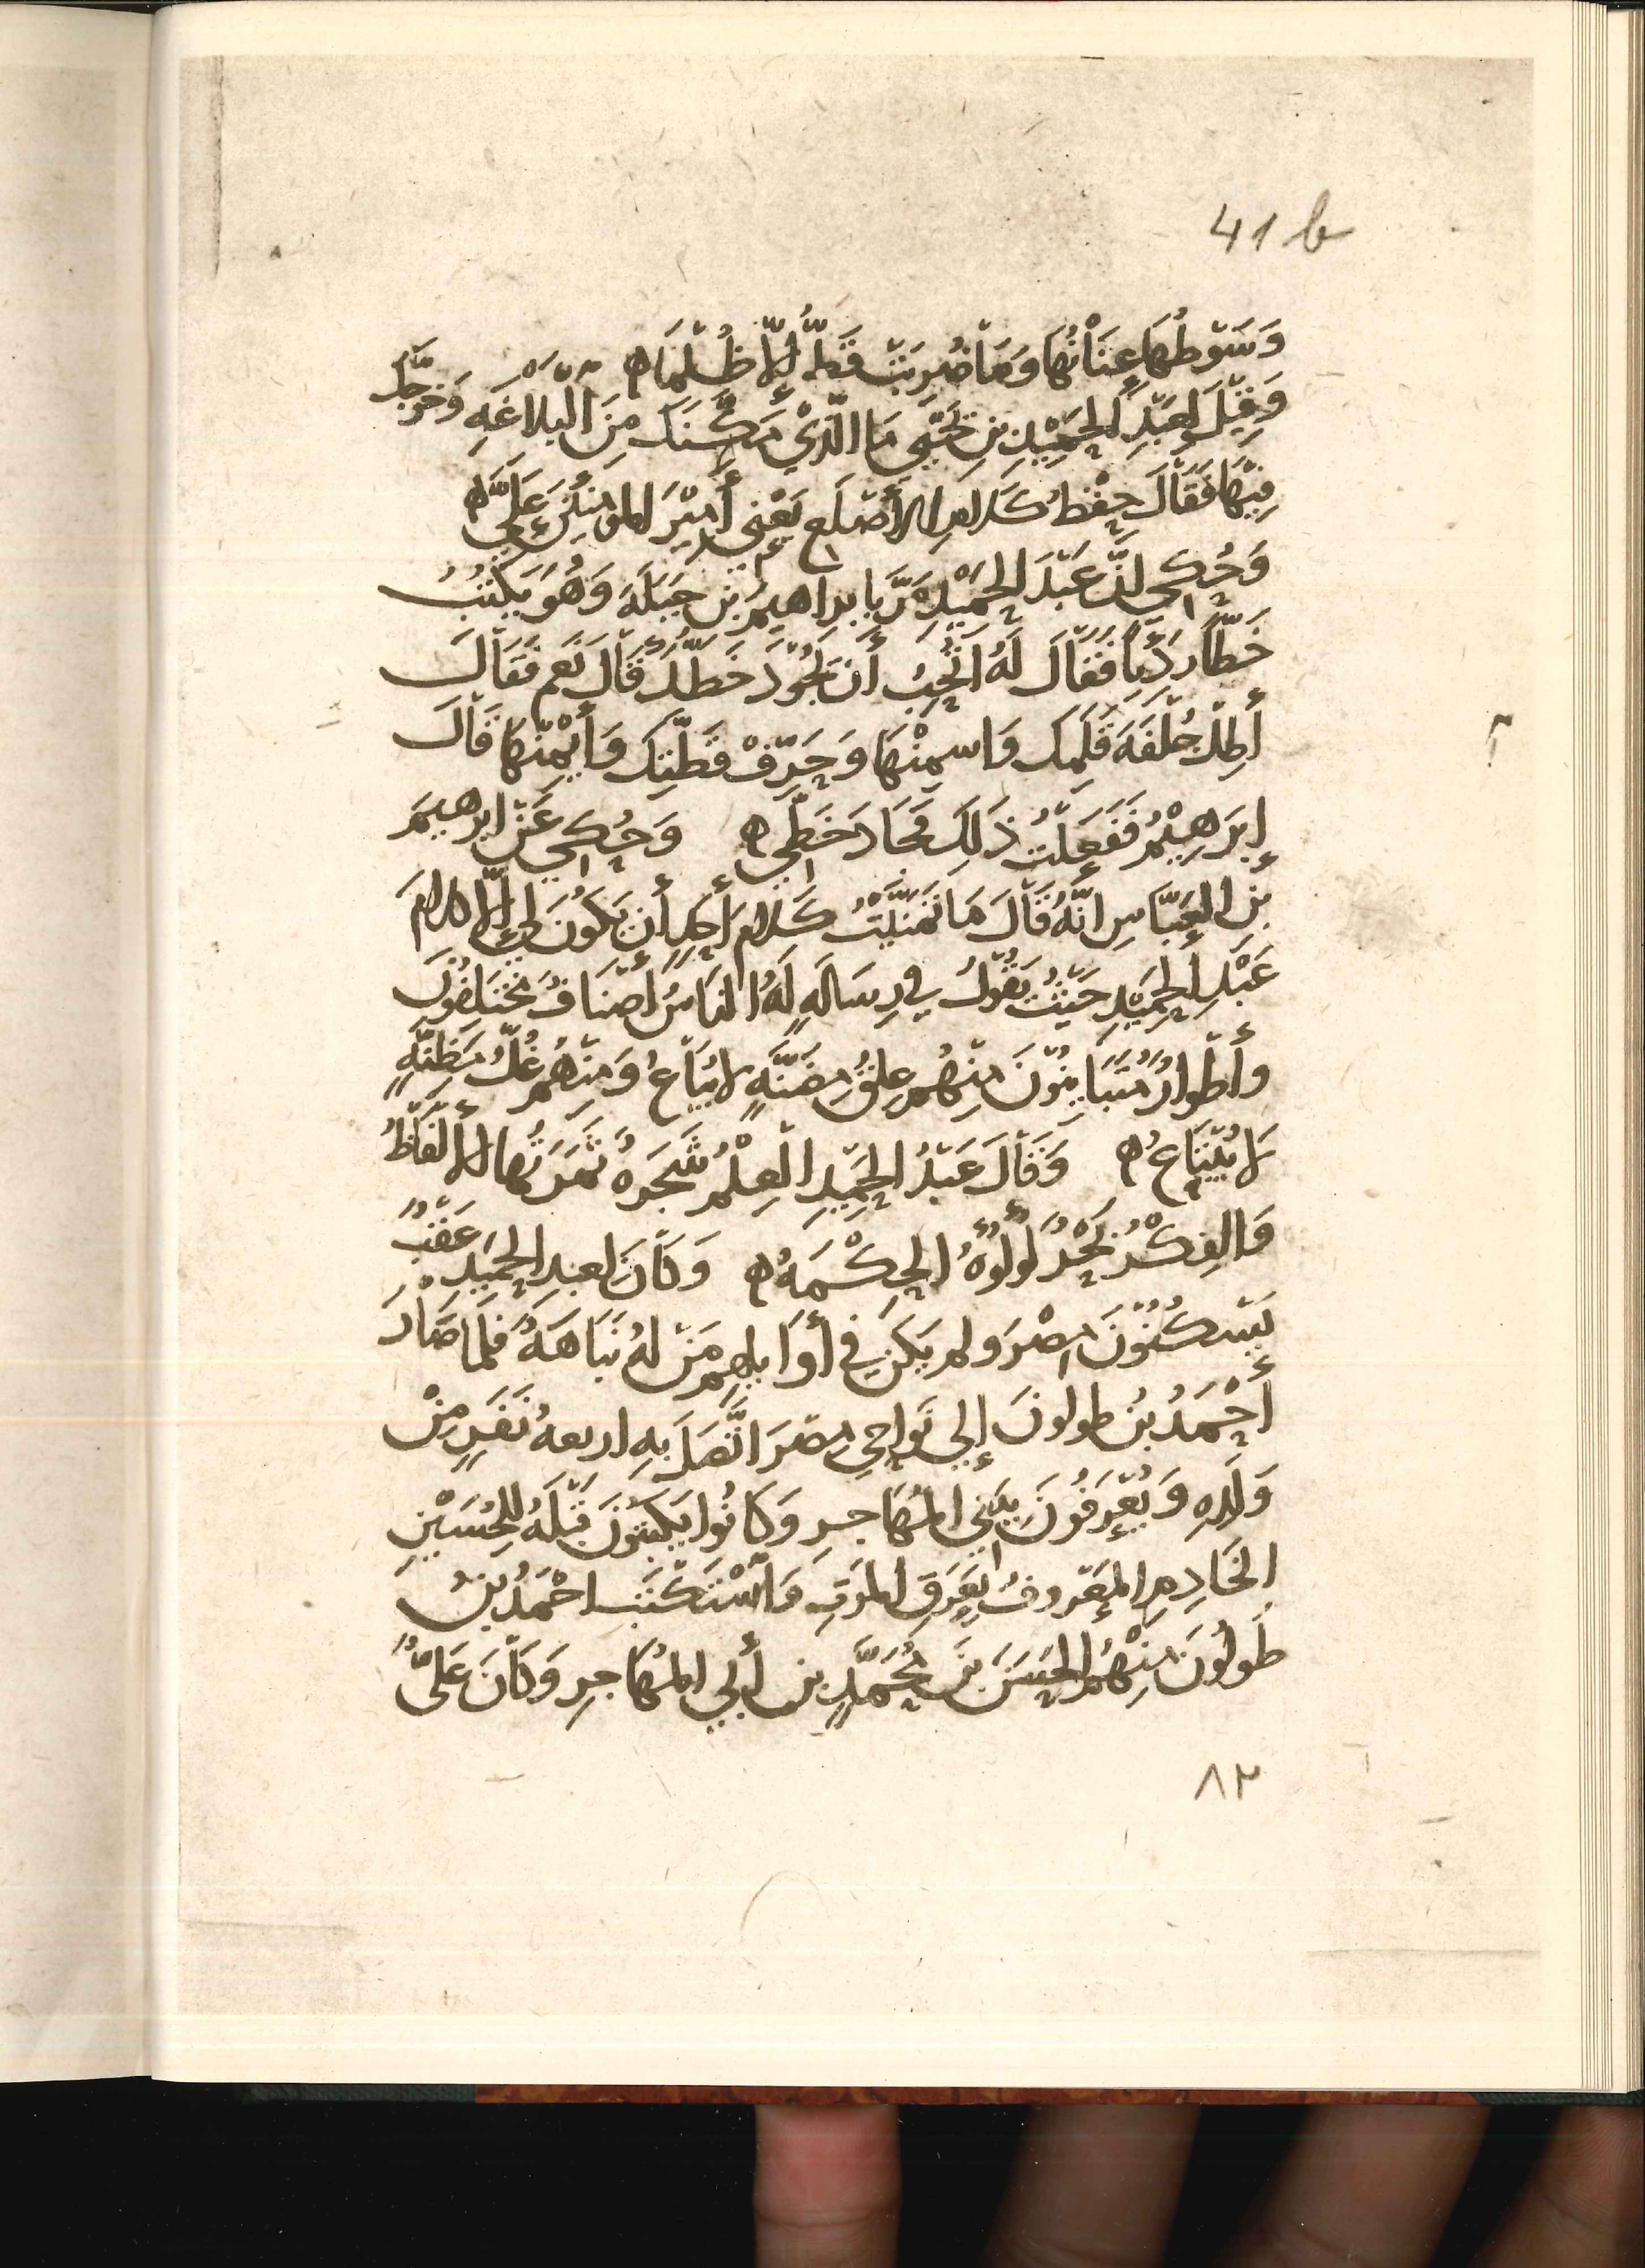 41 b
وَسَوْطُهَا عِنَانُهَا وَمَا ضُرِبَتْ قَطُّ إِلَّا ظُلْمًا ه
وَقِيْلَ لِعَبْدِ الْحَمِيْدِ بنِ يَحْيَى مَا الَّذِيْ مَكَّنَكَ مِنَ الْبَلَاغَةِ وَخَرَّجَكَ
فِيْهَا فَقَالَ حِفْظُ كَلَامِ الأَصْلَعِ يَعْنِي أَمِيْرَ المؤمنين عَلِيًّا ه
وَحُكِيَ انَّ عَبْدَ الحَمِيْدِ مَرَّ بابراهيمَ بن جَبَلَةَ وَهُوَ يَكْتُبُ
خَطًّا رَدِيًّا فَقَالَ لَهُ اتُحِبُّ أَن يَجُوْدَ خَطُّكَ قَالَ نَعَم فَقَالَ
أَطِلْ جُلْفَةَ قَلَمِكَ وَاسمِنْهَا وَحَرِّفْ قَطَّتِكَ وَأَيْمِنْهَا قَالَ
إِبْرَهِيْمُ فَفَعَلْتُ ذَلِكَ فَجَادَ خَطِّي ه وَحُكِيَ عَنْ ابرهيمَ
بْنِ العَبَّاسِ انَّهُ قَالَ مَا تَمَنَّيْتُ كَلَامَ أَحَدٍ أَن يَكُونَ لِي إِلَّا كلامَ
عَبْدِ الحَمِيْدِ حَيْثُ يَقُوْلُ فِي رِسَالَةٍ لَهُ الناسُ أَصْنَافٌ مُخْتَلِفُوْنَ
وأَطْوَارٌ مُتَبَايِنُوْنَ مِنْهُم عِلقُ مَضَنَّةٍ لا يُبَاعُ وَمِنْهُم غُلُّ مَظِنَّةٍ
لَا يُبْتَاعُ ه وَقَالَ عَبْدُ الحَمِيْدِ الْعِلْمُ شَجَرَةٌ ثَمَرَتُهَا الأَلْفَاظُ
وَالفِكْرُ بَحْرٌ لُؤْلُؤُهُ الحِكْمَةُ ه وَكَانَ لعبدِ الحَمِيْدِ عَقْبٌ
يَسْكُنُوْنَ مِصْرَ وَلم يَكُن فِي أَوَايلِهِم مَنْ لَهُ نَبَاهَةٌ فَلَمَّا صَارَ
أَحْمَدُ بنُ طولونَ إِلى نَوَاحِي مِصْرَ اتَّصَلَ بِهِ اربعةُ نَفَرٍ مِنْ
وَلَدِهِ وَيُعْرَفُونَ بِبَنِي المُهَاجِرِ وَكَانُوا يَكْتُبُونَ قَبْلَهُ لِلحُسَيْنِ
الخَادِمِ المَعْروفِ بِعَرَقِ المَوتِ فَاسْتَكْتَبَ احْمَدُ بْنُ
طُولُونَ مِنْهُم الحَسَنَ بْنَ مُحَمَّدِ بن أَبِي المُهَاجِرِ وَكَانَ عَلِيُّ
٨٢